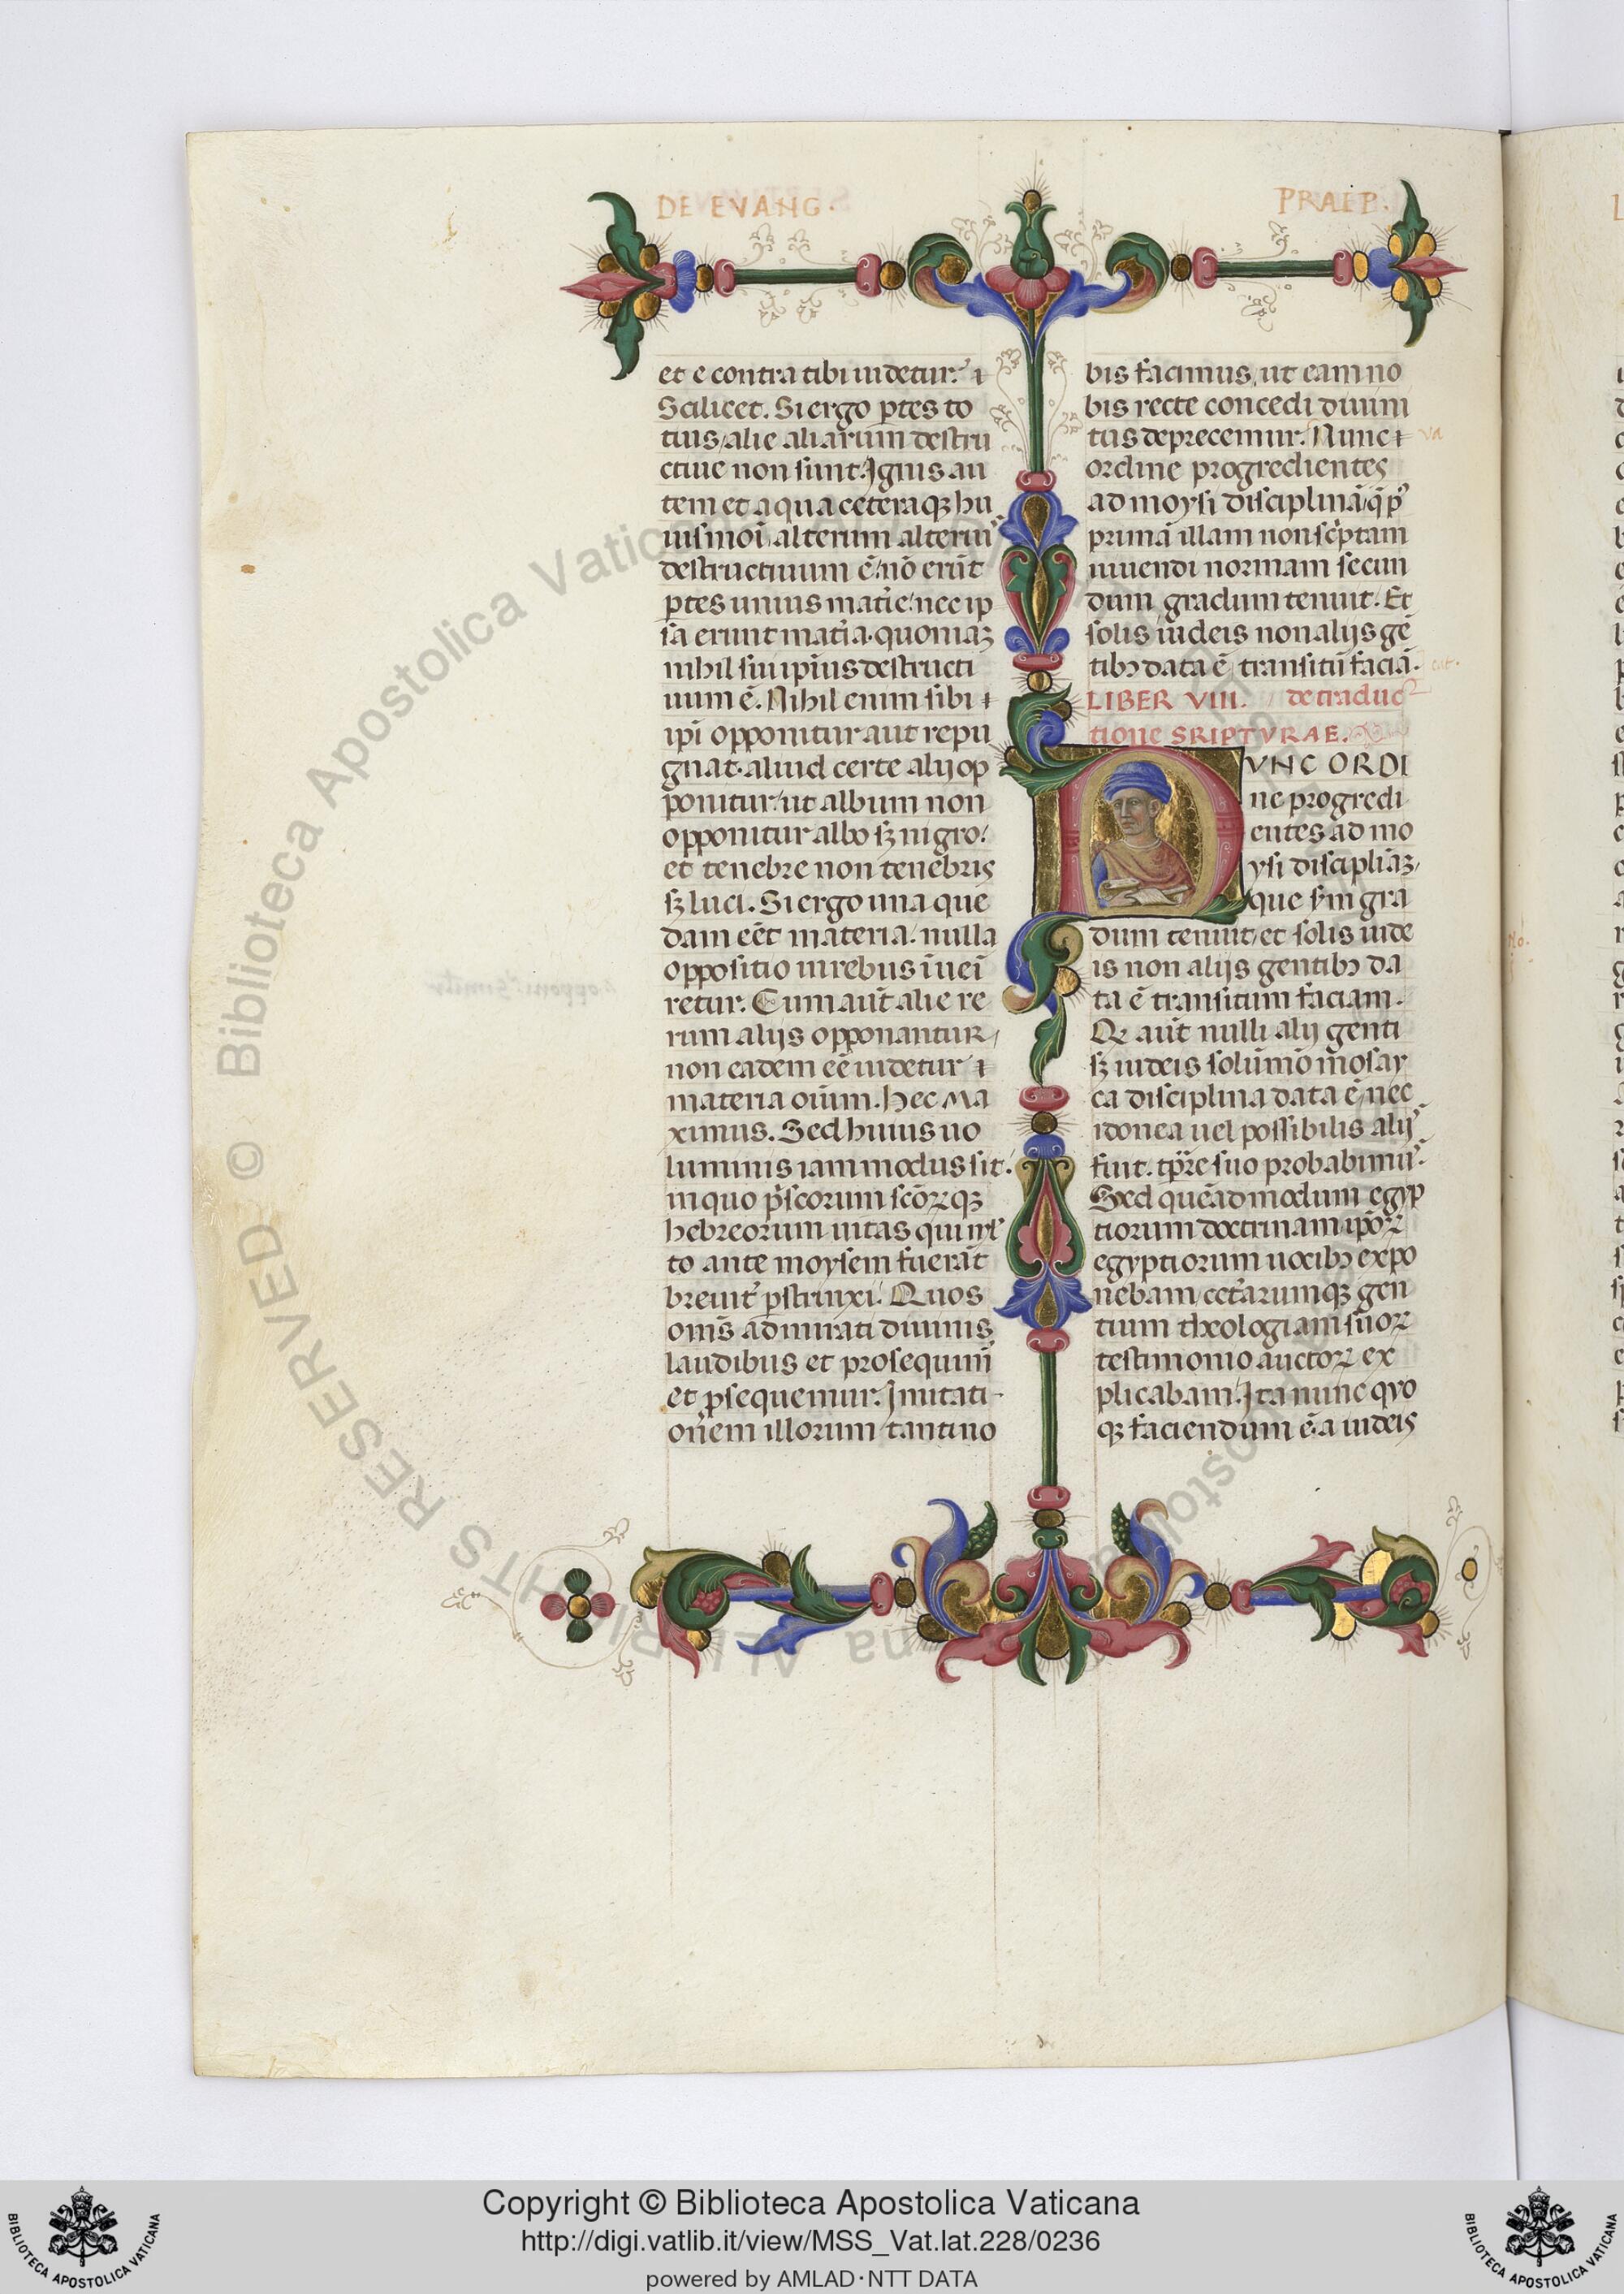 DE EVANG.
PRAEP.
et e contra tibi uidetur. ⁊
Scilicet. Si ergo ꝑtes to
tius alie aliarum destru
ctiue non sunt. Ignis au
tem et aqua ceteraqꝫ hu
iusmōi alterum alterius
destructiuum ē, nō erūt
ꝑtes unius mat̄ie, nec ip
sa erunt mat̄ia. quoniaꝫ
nihil sui ipīus destructi
uum ē. Nihil enim sibi ⁊
ipī opponitur aut repu
gnat. aliud certe alij op
ponitur, ut album non
opponitur albo sꝫ nigro.
et tenebre non tenebris
sꝫ luci. Si ergo una que
dam eēt materia. nulla
oppositio in rebus īueī
retur. Cum aūt alie re
rum alijs opponantur,
non eadem eē uidetur ⁊
materia oīum. Hec Ma
ximus. Sed huius uo
luminis iam modus sit.
in quo p̄scorum scōꝝqꝫ
hebreorum uitas qui
to ante moysem fuerāt
breuit̄ ꝑstrinxi. Quos
om̄s admirati diuinis
laudibus et prosequim̄
et ꝓsequemur. Imitati
onem illorum tanti no
bis facimus, ut eam no
bis recte concedi diuini
tus deprecemur. Nunc ⁊
ordine progredientes
ad moysi disciplinā q̄ p᷒
primā illam non scriptam
uiuendi normam secun
dum gradum tenuit. Et
solis iudeis non alijs gē
tibꝫ data ē transitū faciā.
LIBER VIII. de traduc
tione SRIPTVRAE.
VNC ORDI
ne progredi
entes ad mo
ysi discipliāꝫ,
que gra
dum tenuit, et solis iude
is non alijs gentibꝫ da
ta ē transitum faciam.
Qꝫ aūt nulli alij genti
sꝫ iudeis solūmō mosay
ca disciplina data ē, nec
idonea uel possibilis alijs
fuit. tꝑre suo probabimus.
Sed quēadmodum egyp
tiorum doctrinam ipōꝝ
egyptiorum uocibꝫ expo
nebam, cet̄arumqꝫ gen
tium theologiam suoꝝ
testimonio auctoꝝ ex
plicabam. Ita nunc quo
qꝫ faciendum ē. a iudeis
Biblioteca Apostolica Vaticana ALL RIGHTS RESERVED ©
Copyright © Biblioteca Apostolica Vaticana
http://digi.vatlib.it/view/MSS_Vat.lat.228/0236
powered by AMLAD·NTT DATA
BIBLIOTECA APOSTOLICA VATICANA
BIBLIOTECA APOSTOLICA VATICANA